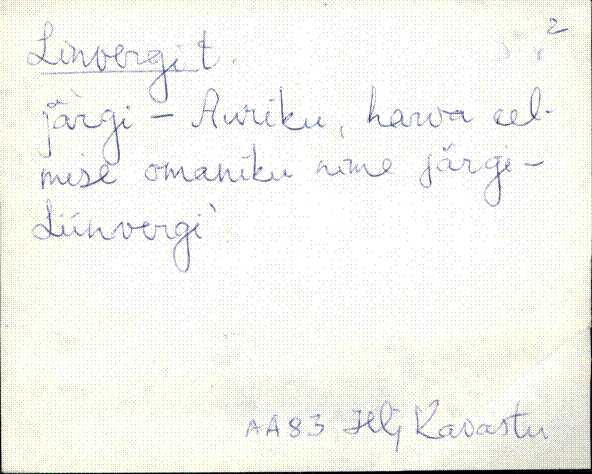 2
Linvergi t.
järgi – Auriku, harva eel-
mise omaniku nime järgi –
Liinvergi`
AA83 Hlj Kavastu